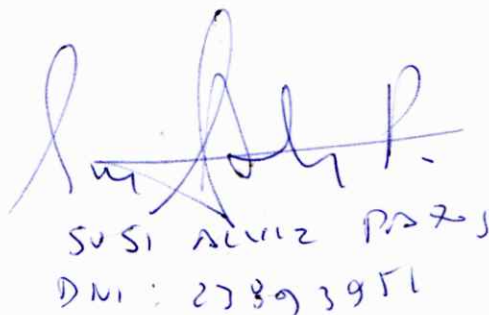 SUSI ALVIZ PAZOS
DNI: 23893951